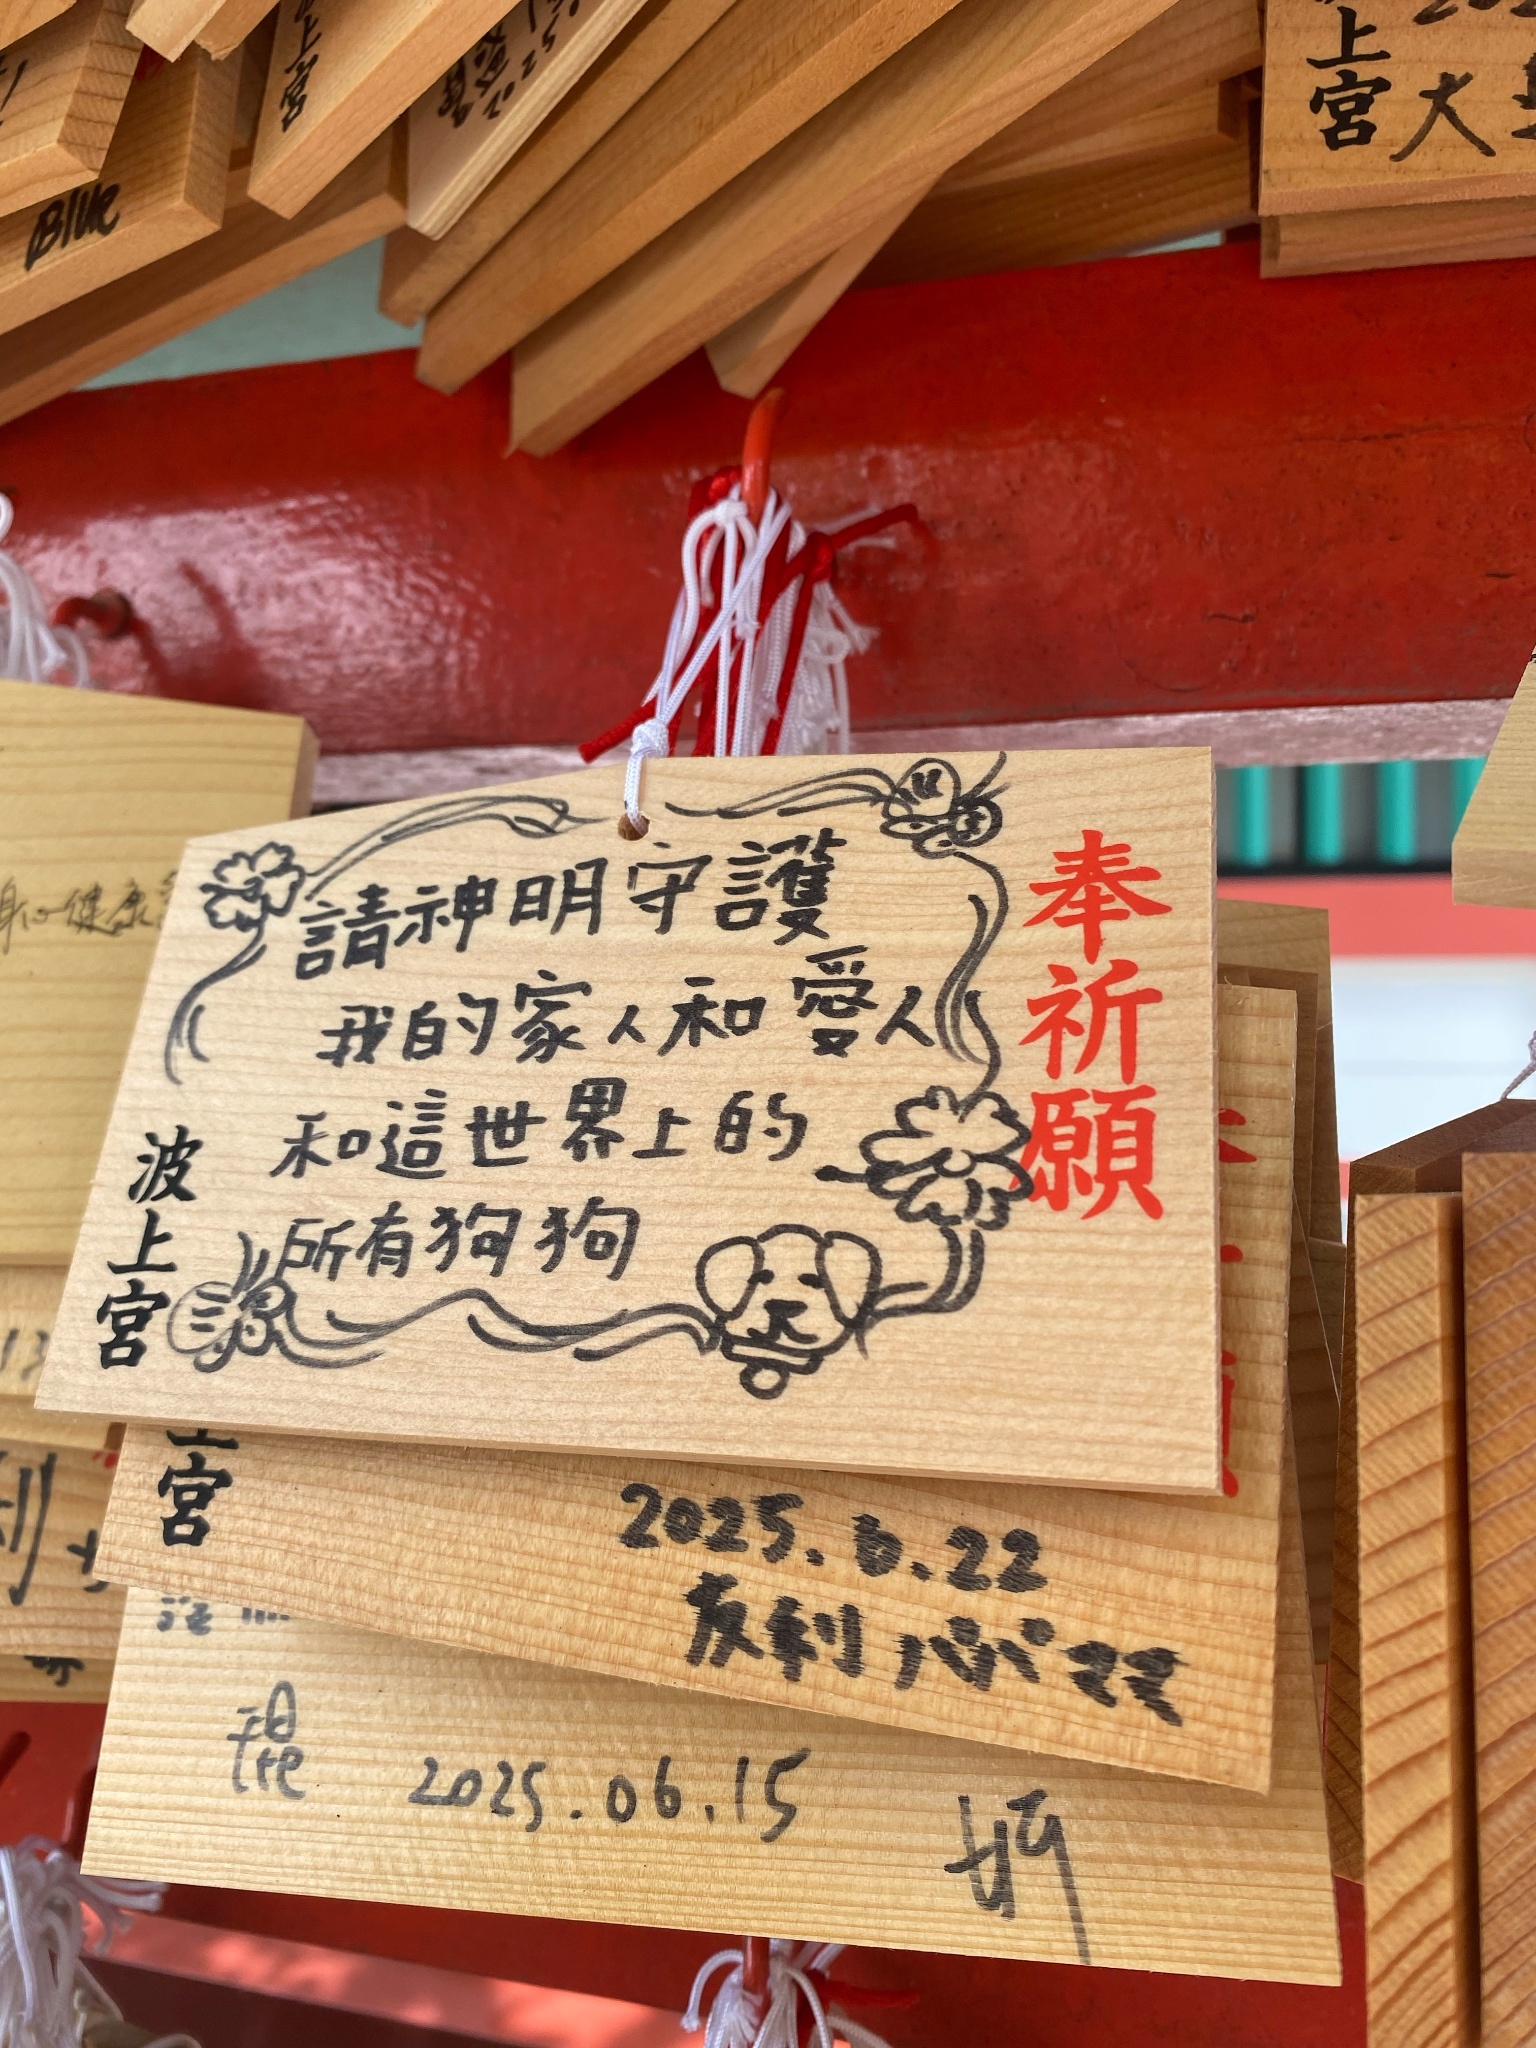 上宮
2025.
Blue
上宮
大
身心健康
奉祈願
請神明守護
我的家人和愛人
和這世界上的
所有狗狗
波上宮
上宮
2025.6.22
友利パパママ
2025.06.15